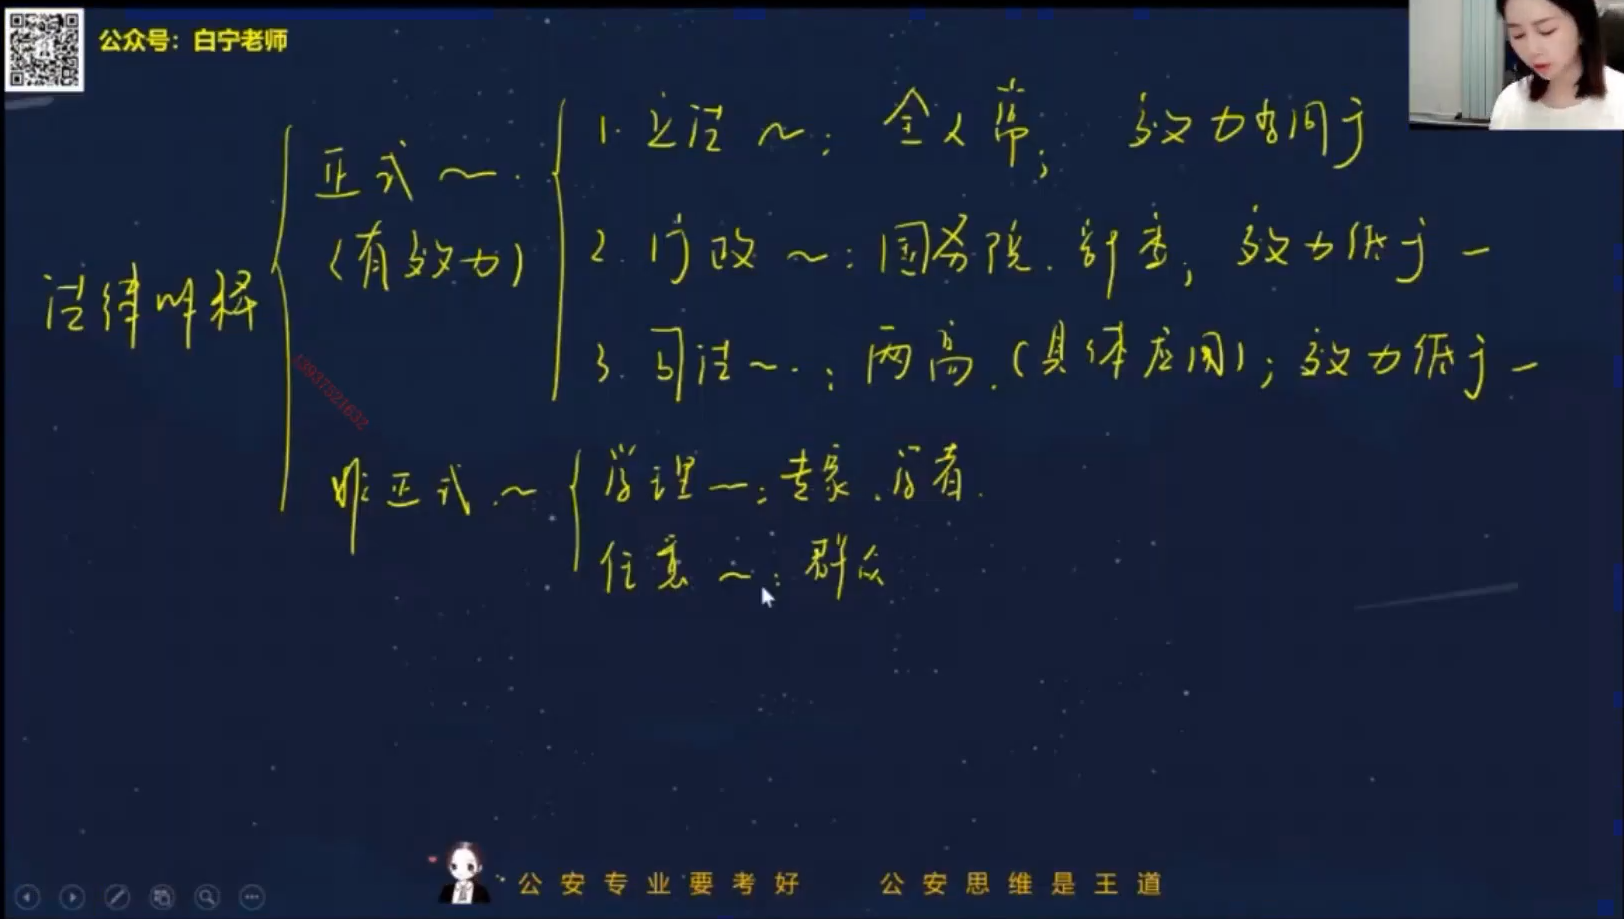 公众号：白宁老师
法律解释
正式～.
（有效力）
1. 立法～：全人常； 效力相同于
2. 行政～：国务院、部委；效力低于一
3. 司法～.：两高.（具体应用）；效力低于一
13937521632
非正式.～
学理～：专家、学者.
任意～：群众
公安专业要考好 公安思维是王道